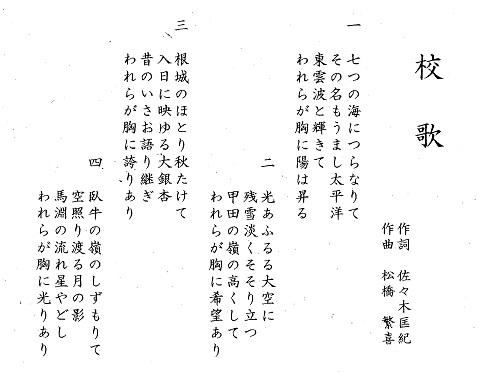 校歌
作詞 佐々木匡紀
作曲 松橋繁喜
一
七つの海につらなりて
その名もうまし太平洋
東雲波と輝きて
われらが胸に陽は昇る
二
光あふるる大空に
残雪淡くそそり立つ
甲田の嶺の高くして
われらが胸に希望あり
三
根城のほとり秋たけて
入日に映ゆる大銀杏
昔のいさお語り継ぎ
われらが胸に誇りあり
四
臥牛の嶺のしずもりて
空照り渡る月の影
馬淵の流れ星やどし
われらが胸に光りあり